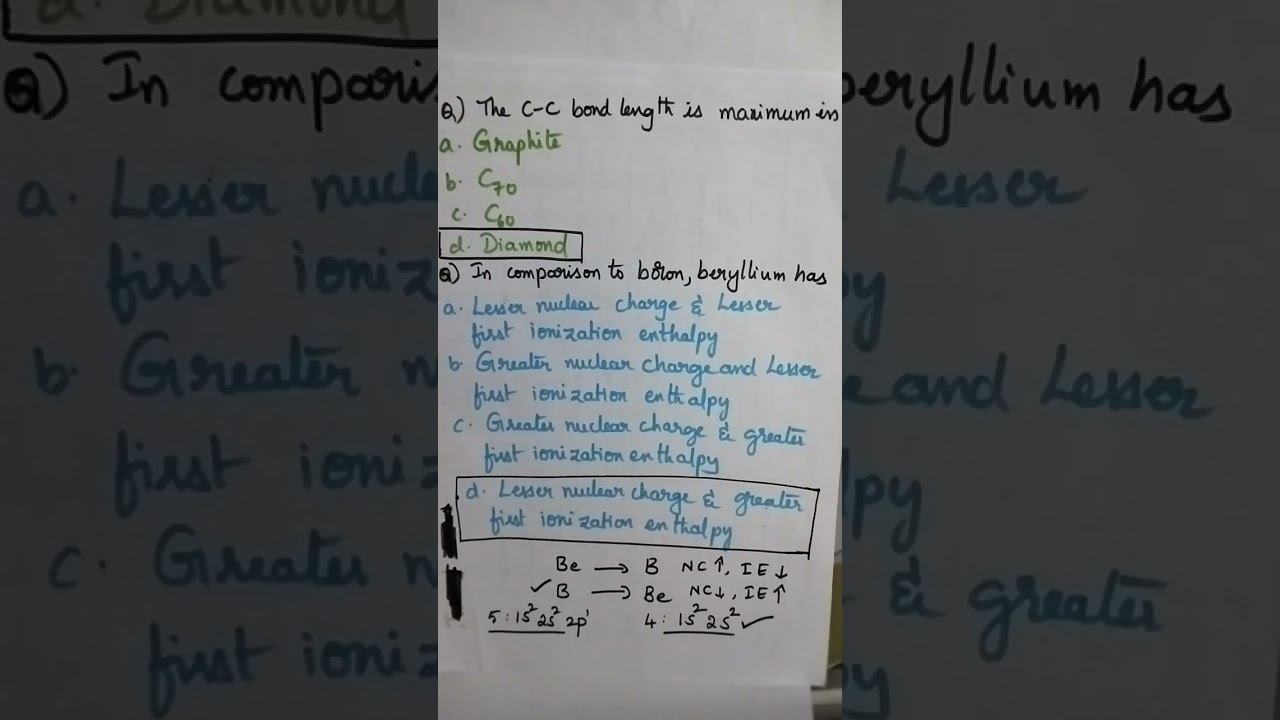 Q) The C-C bond length is maximum in
a. Graphite
b. C70
c. C60
d. Diamond
Q) In comparison to boron, beryllium has
a. Lesser nuclear charge & Lesser
first ionization enthalpy
b. Greater nuclear charge and Lesser
first ionization enthalpy
c. Greater nuclear charge & greater
first ionization enthalpy
d. Lesser nuclear charge & greater
first ionization enthalpy
Be → B NC↑, IE↓
✓B → Be NC↓, IE↑
5: 1s² 2s² 2p¹ 4: 1s² 2s² ✓